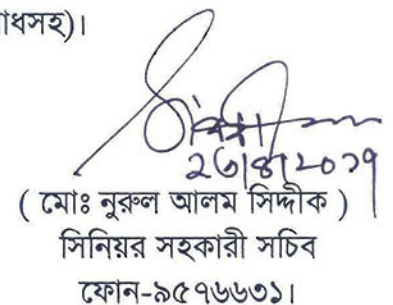 াধসহ)।
২৬/৪/২০১৭
( মোঃ নুরুল আলম সিদ্দীক )
সিনিয়র সহকারী সচিব
ফোন-৯৫৭৬৬৩১।